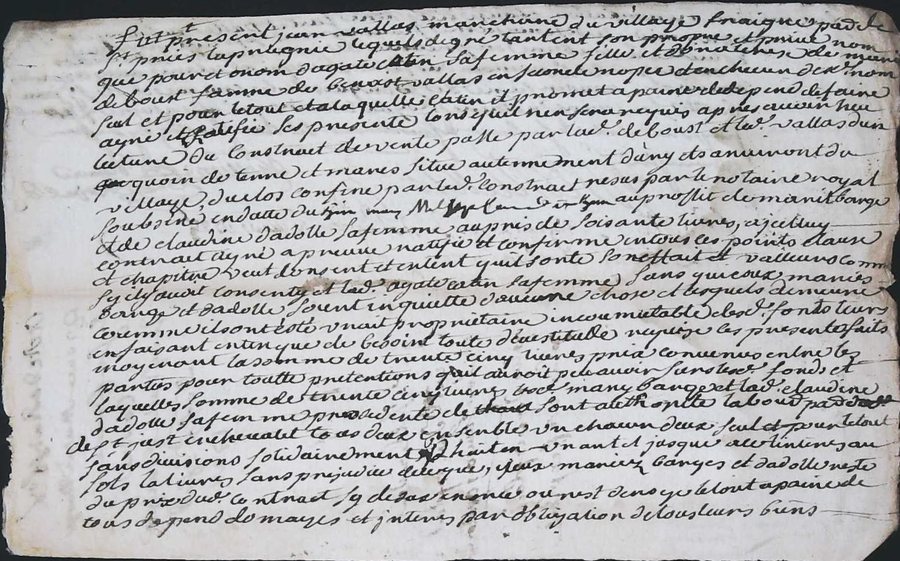 fut présent jean vallas marchand du village fraigne parde
st priest la prugnie lequel de gré tantent son propre et privé nom
que pour et au nom d'agate catin sa femme fille et de
deboust famme de benoist vallas en seconde nopce d'en chacun des nom
seul et pour le tout et a la quelle catin il promet a paine de depend defaire
agréé et ratifié les presente lors quil n'en sera requis apres avoir heu
lecture du constract de vente passé par led. deboust et led. vallas d'un
quoin de terre et mares situé au tennement d'any ets anviront du
village duclos confine par led. constract resus par le notaire royal
soubsiné en datte du au proffit de manit barge
et de claudine dadolle sa femme au pris de soisante livres, a icelluy
contrait agréé apreuvé ratifié et confirmé en tous ces points clause
et chapitre veut consent et entent quil sorte son effait et valleurs comme
sy il y avoit consenty et lad. agate catin sa femme sans que ceux mariés
barge et dadolle soient inquietté d'aucune chose et lesquels demeure
coremme ils ont esté vrait propriétaire incomutable desd. fonds leurs
en faisant en tin que de besoint toute devestitude requise les presente faits
moyenant la somme de trente cinq livres prix convenus entre les
parties pour toutte pretentions qu'il auroit peu avoir sur lesd. fonds et
laquelles somme de trente cinq livres lesd. many barge et lad. claudine
dadolle sa femme presente de sont authorisée labour par
de st just en chevalet tous deux ensemble un chacun deux seul et pour le tout
sans divisions solidairement un ant et jusque a le interes au
sols la livres sans prejudice de ce que, iceux mariez barges et dadolle reste
du prix dud. contract sy dessus enoncé ou reste de le tout a paine de
tous depend domages et interes par obligation de tous leurs biens